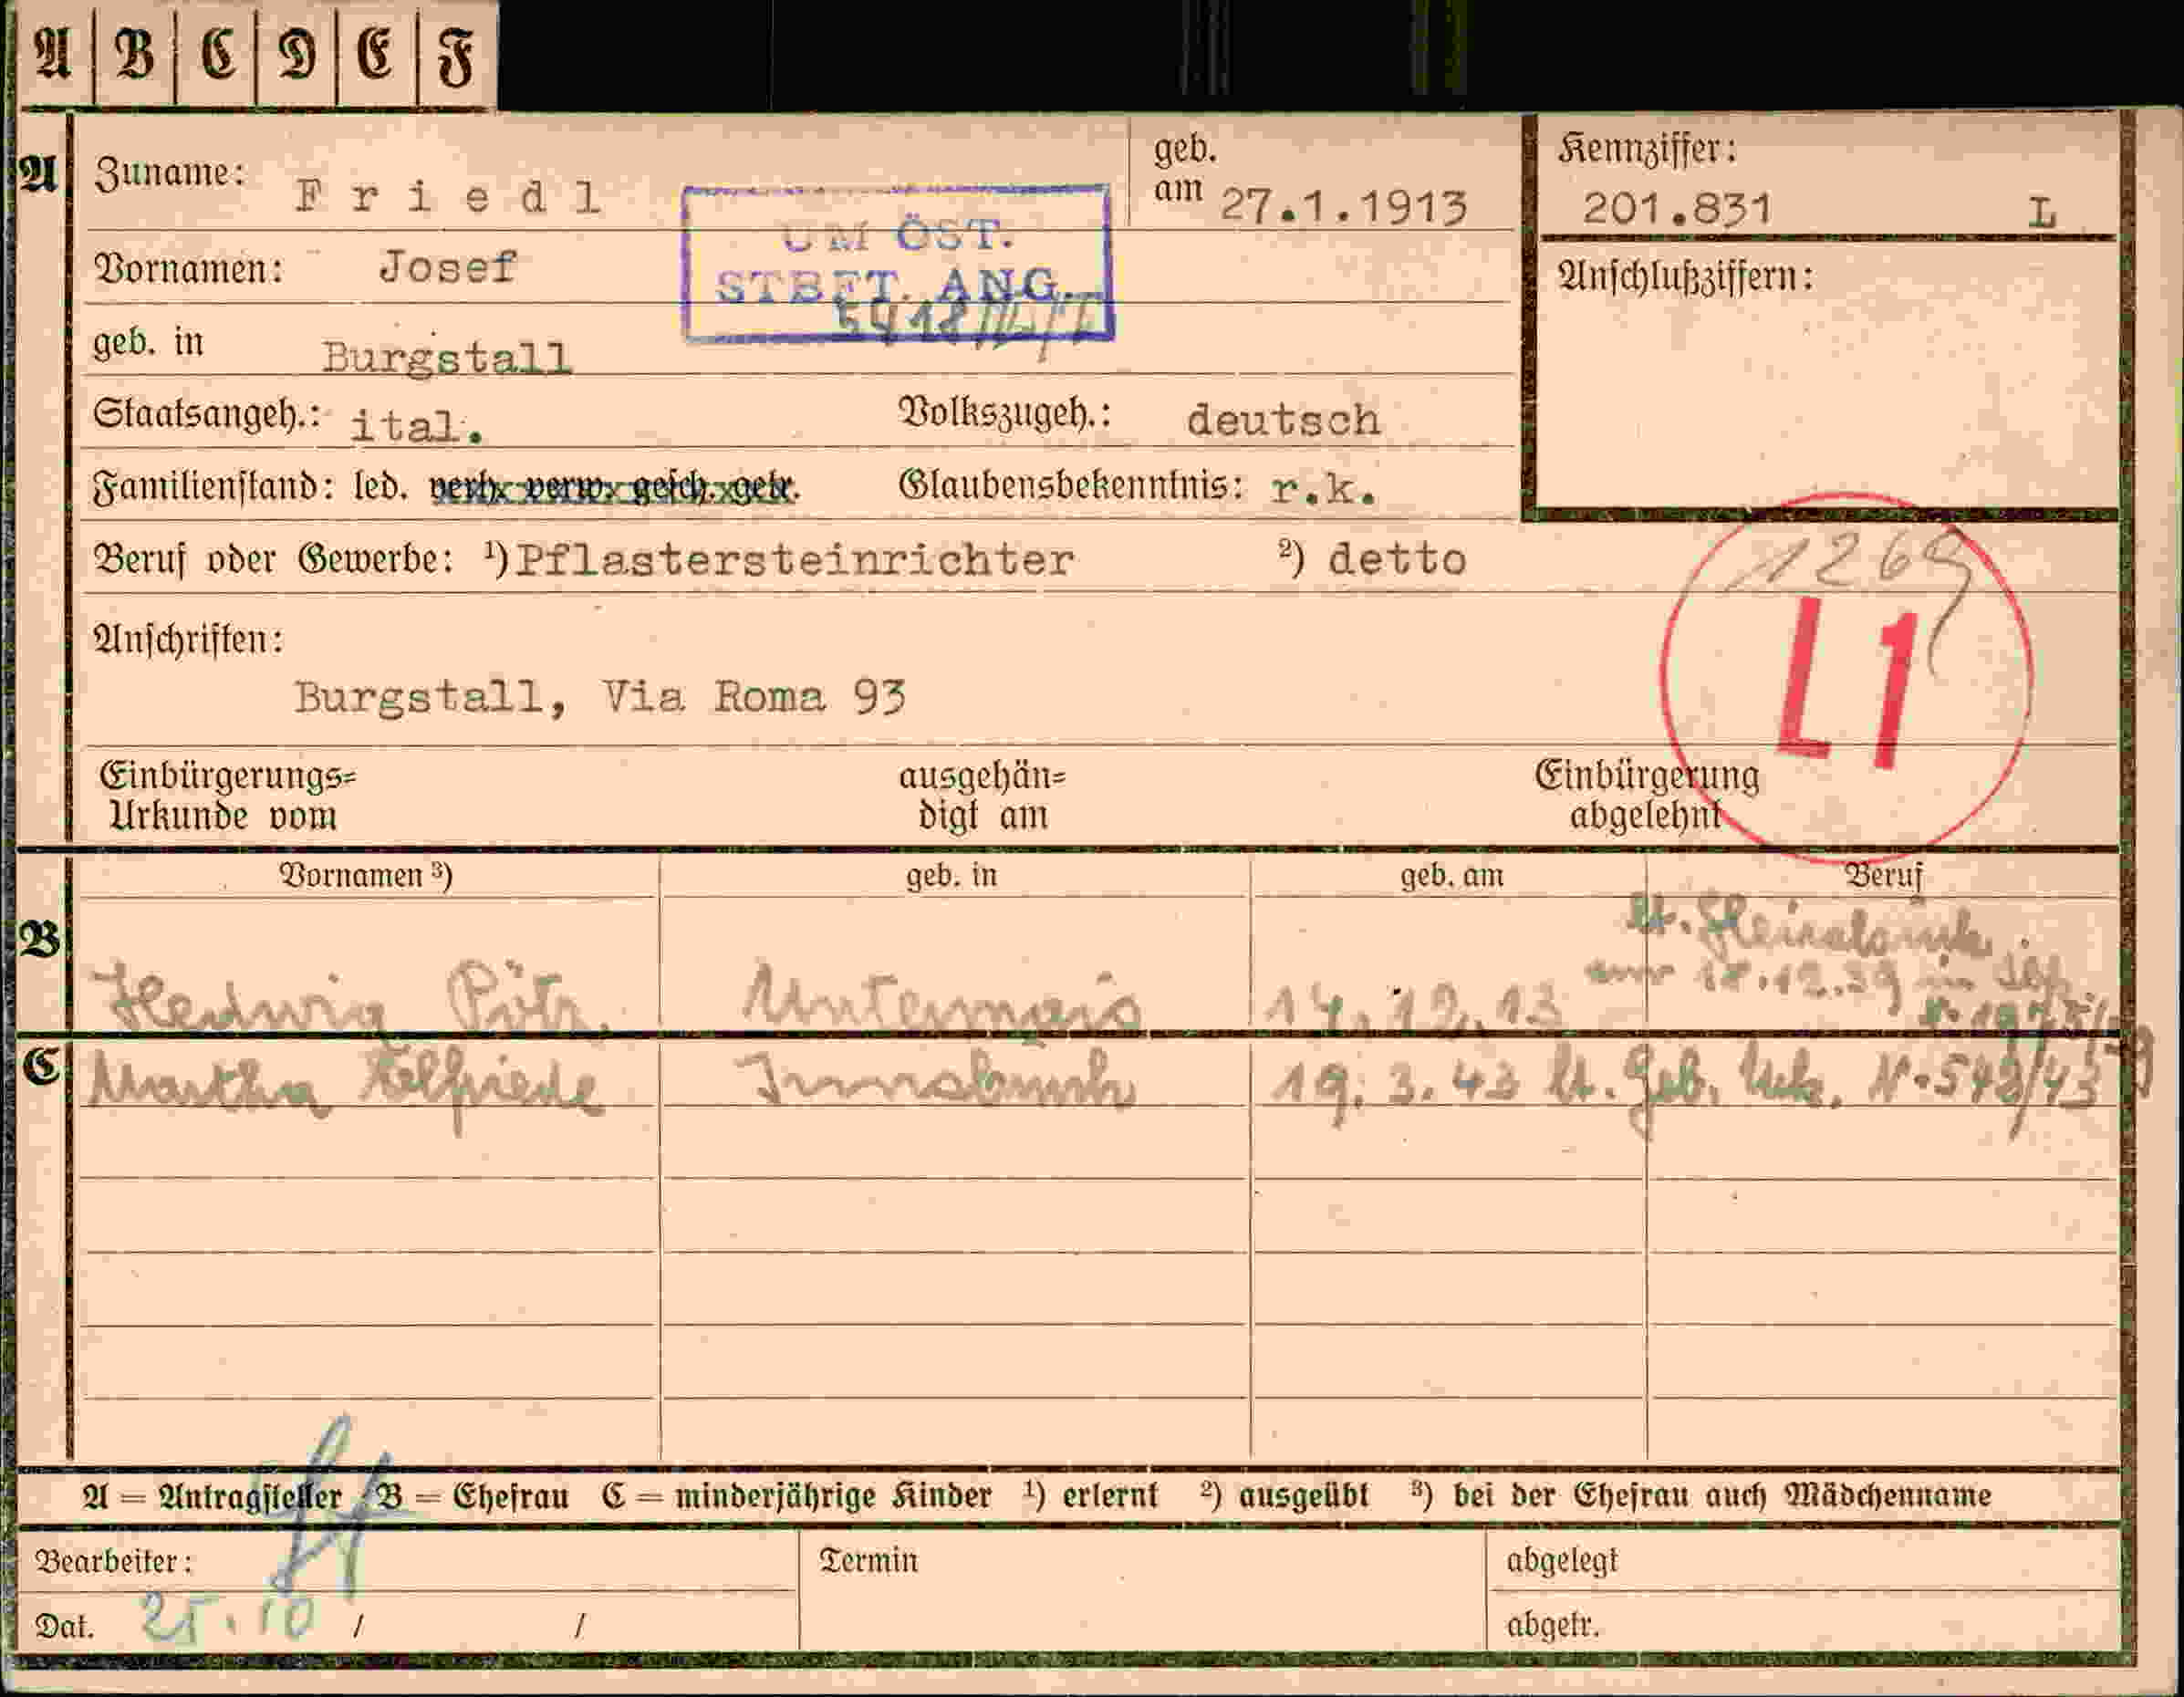 A B C D E F
A Zuname: Friedl geb. am 27.1.1913 Kennziffer: 201.831 L
UM ÖST. STBFT. ANG.
Vornamen: Josef Anschlußziffern:
geb. in Burgstall
Staatsangeh.: ital. Volkszugeh.: deutsch
Familienstand: led. verh. verw. gesch. getr. Glaubensbekenntnis: r.k.
1269
Beruf oder Gewerbe: ¹) Pflastersteinrichter ²) detto
L1
Anschriften:
Burgstall, Via Roma 93
Einbürgerungs= Urkunde vom ausgehän= digt am Einbürgerung abgelehnt
Vornamen ³) geb. in geb. am Beruf
lt. Heiratsurk.
am 18.12.39 in
B Hedwig Untermais 14.12.13
C Martha Elfriede Innsbruck 19.3.43 lt. Geb. Urk. N. 548/43
A = Antragsteller B = Ehefrau C = minderjährige Kinder ¹) erlernt ²) ausgeübt ³) bei der Ehefrau auch Mädchenname
Bearbeiter: Termin abgelegt
Dat. 25.10 / / abgetr.